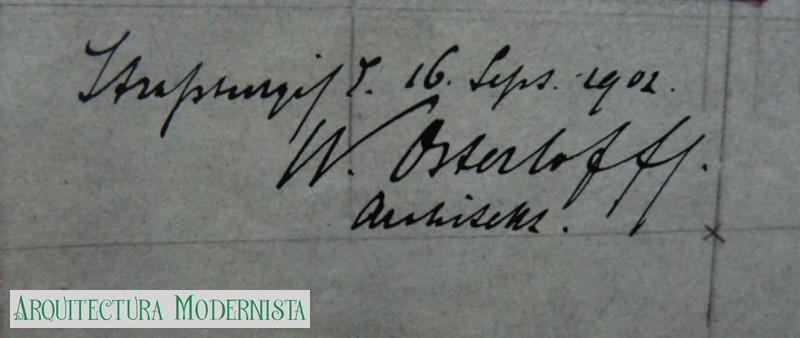 Straßburg i/E. 16. Sept. 1902.
W. Osterloff.
Architekt.
ARQUITECTURA MODERNISTA